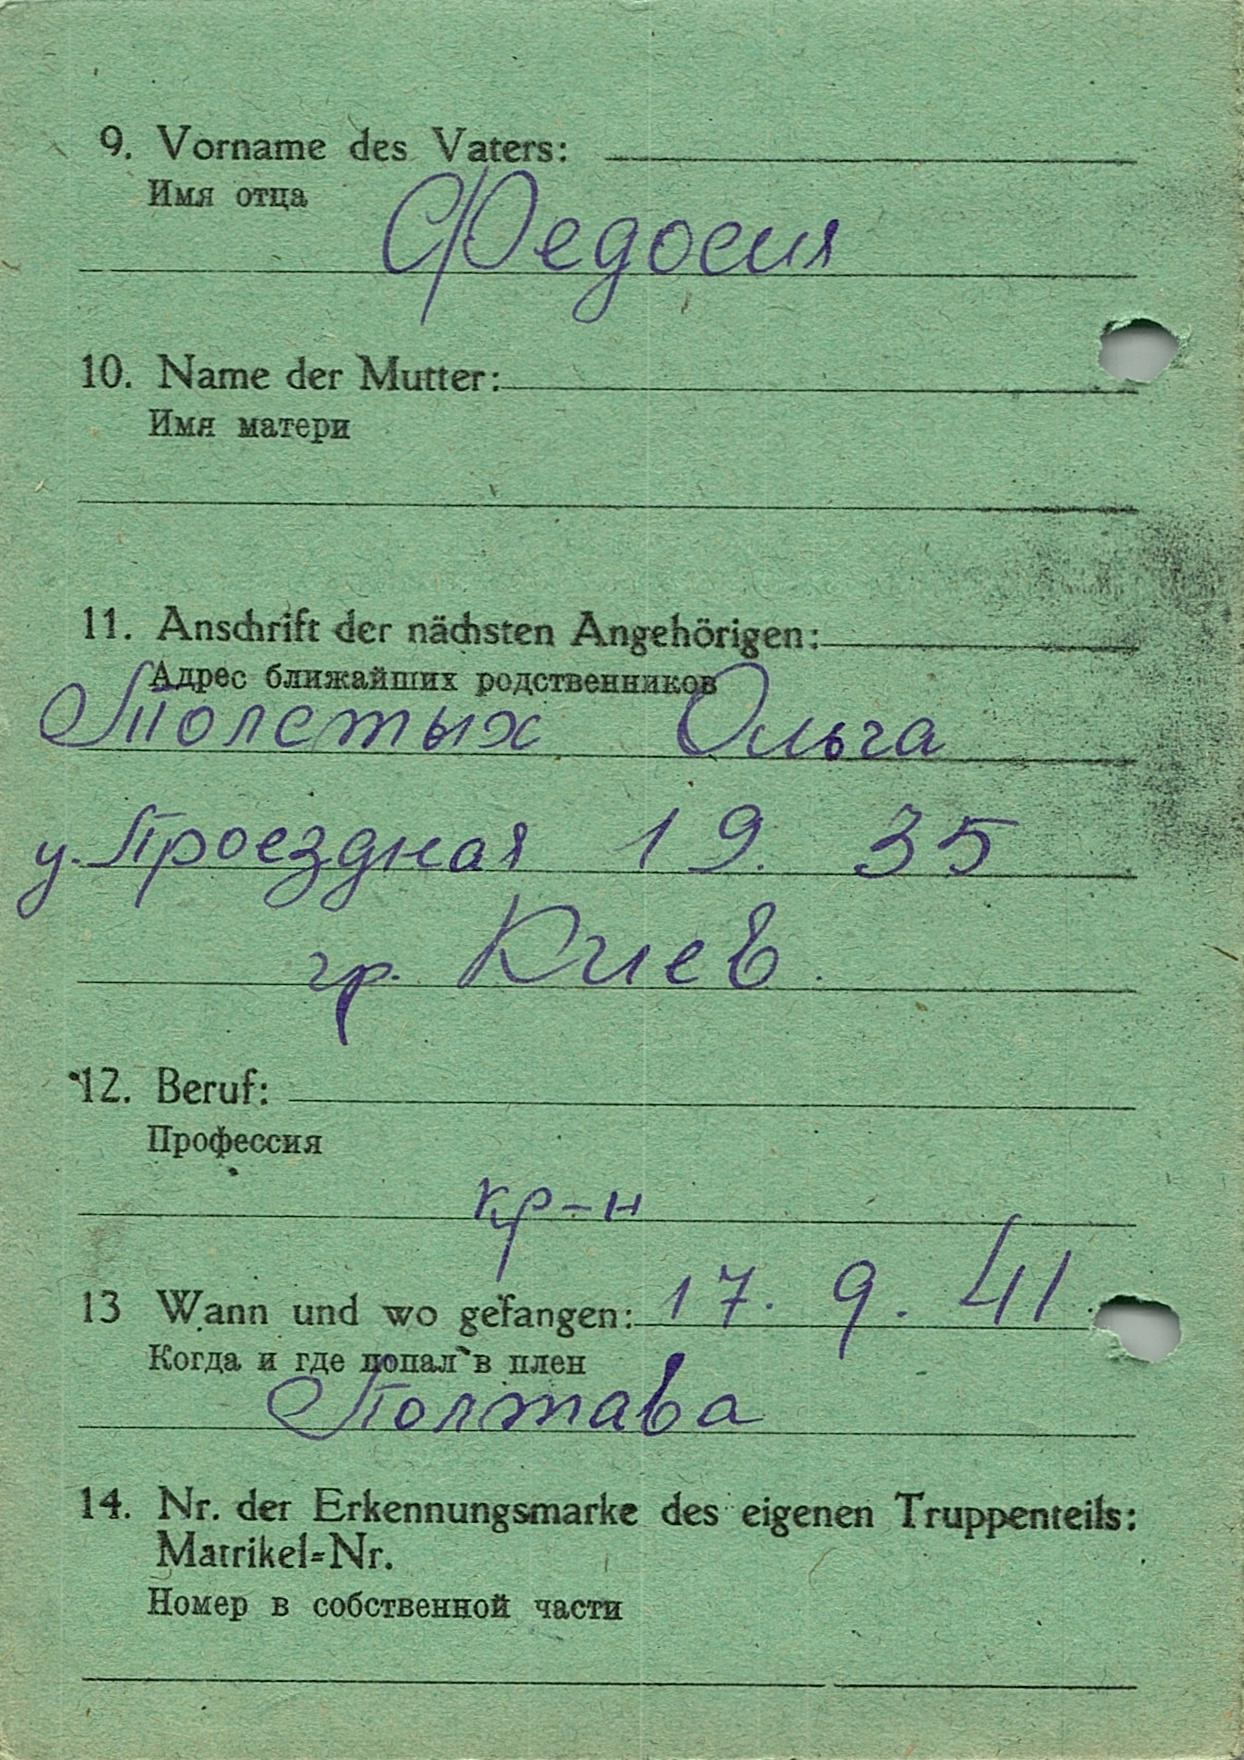 9. Vorname des Vaters:
Имя отца
Федосия
10. Name der Mutter:
Имя матери
11. Anschrift der nächsten Angehörigen:
Адрес ближайших родственников
Толстых Ольга
у. Проездная 19. 35
гр. Киев.
12. Beruf:
Профессия
кр-н
13 Wann und wo gefangen: 17. 9. 41.
Когда и где попал в плен
Полтава
14. Nr. der Erkennungsmarke des eigenen Truppenteils:
Matrikel=Nr.
Номер в собственной части